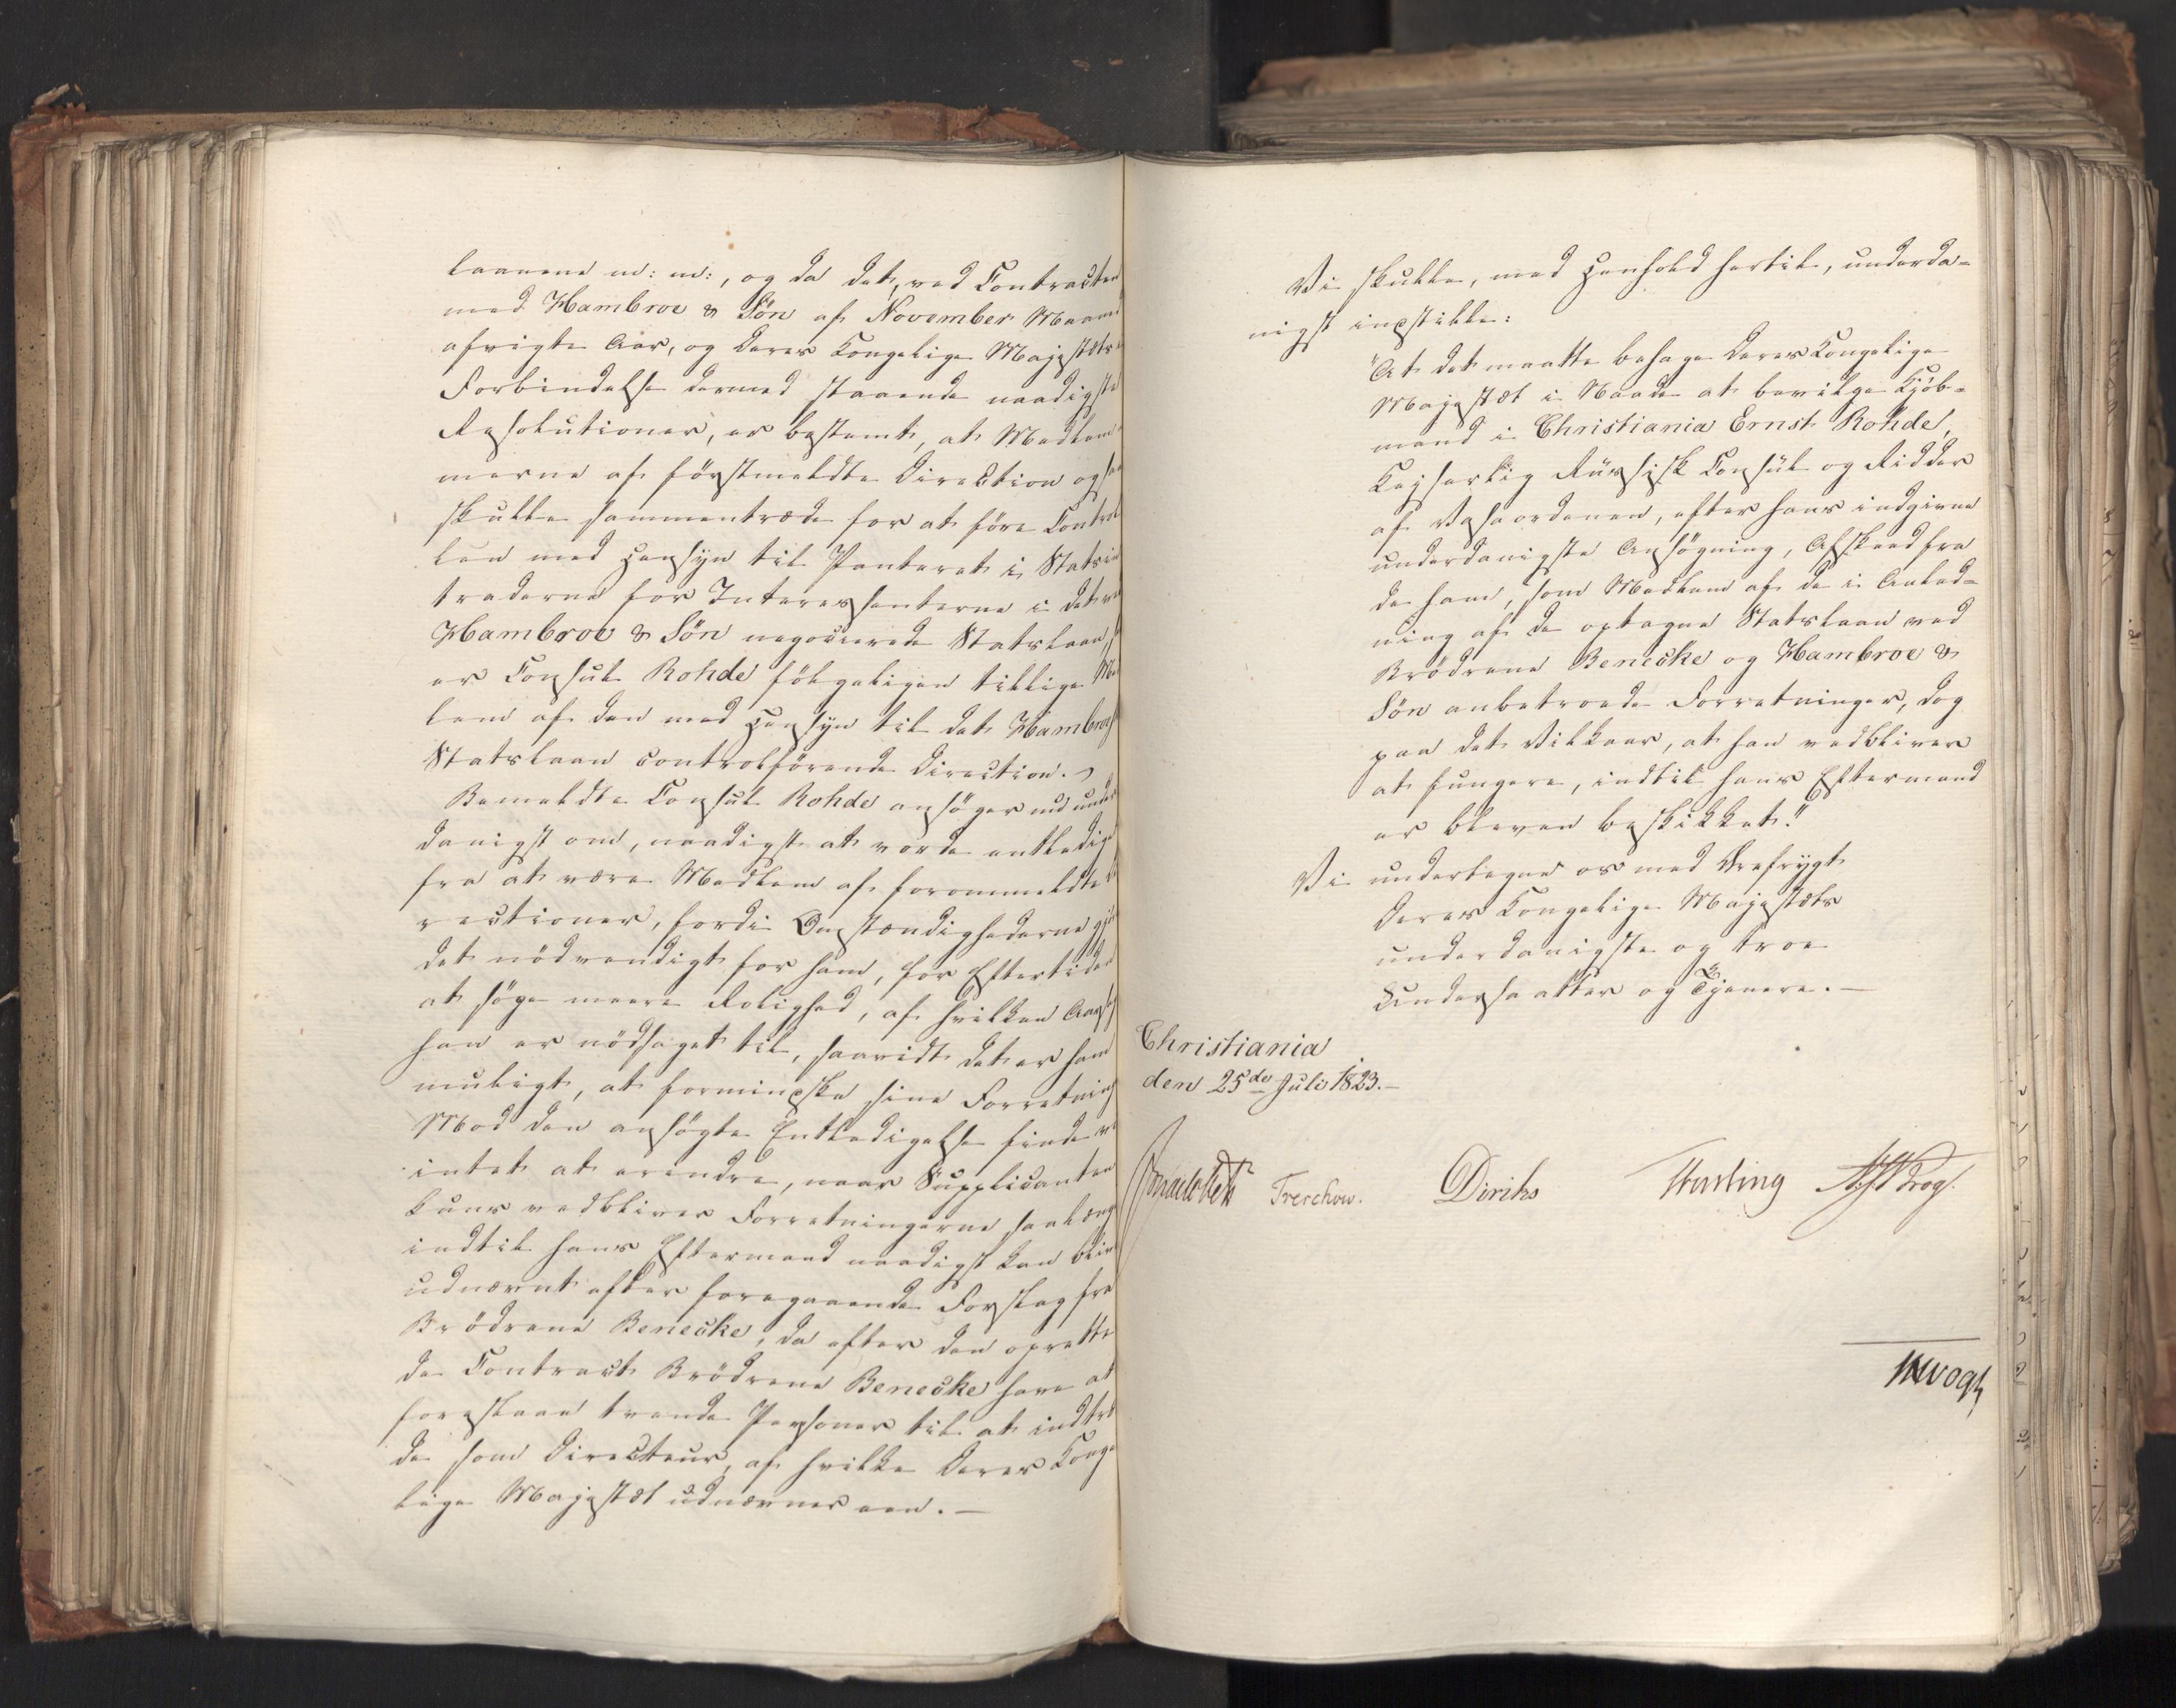 laanene m: m:, og da det, ved Contracten
med Hambroe & Søn af November Maaned
afvigte Aar, og Deres Kongelige Majestæts i
Forbindelse dermed staaende naadigste
Resolutioner, er bestemt, at Medlem-
merne af förstmeldte Direction ogsaa
skulle sammentræde for at före Control
len med Hensyn til Panteret i Statsin
traderne for Interessenterne i det ved
Hambroe & Søn negocierede Statslaan, saa
er Consul Rohde fölgeligen tillige Med
lem af den med Hensyn til det Hambroeske
Statslaan controlförende Direction.
Bemeldte Consul Rohde ansöger nu under
danigst om, naadigst at vorde entlediget
fra at være Medlem af forommeldte Di
rectioner, fordi Omstændighederne gjör
det nödvendigt for ham, for Eftertiden
at söge meere Rolighed, af hvilken Aarsag
han er nödsaget til, saavidt det er ham
muligt, at formindske sine Forretninger.
Mod den ansögte Entledigelse finde vi
intet at erindre, naar Supplicanten
kuns vedbliver Forretningerne saalænge
indtil hans Eftermand naadigst kan blive
udnævnt efter foregaaende Forslag fra
Brödrene Benecke, da efter den oprette
de Contract Brödrene Benecke have at
foreslaae trende Personer til at indtræ
de som Directeur, af hvilke Deres Konge
lige Majestæt udnævner een.—
Vi skulle, med Henhold hertil, underda-
nigst indstille:
"At det maatte behage Deres Kongelige
Majestæt i Naade at bevilge Kjöb-
mand i Christiania Ernst Rohde,
Kejserlig Russisk Consul og Ridder
af Vasaordenen, efter hans indgivne
underdanigste Ansögning, Afskeed fra
de ham, som Medlem af de i Anled-
ning af de optagne Statslaan ved
Brödrene Benecke og Hambroe &
Søn anbetroede Forretninger, dog
paa det Vilkaar, at han vedbliver
at fungere, indtil hans Eftermand
er bleven beskikket."
Vi undertegne os med Ærefrygt
Deres Kongelige Majestæts
underdanigste og troe
Undersaatter og Tjenere.—
Christiania
den 25de Juli 1823.—
Treschow. Diriks Krog.
JHVogt